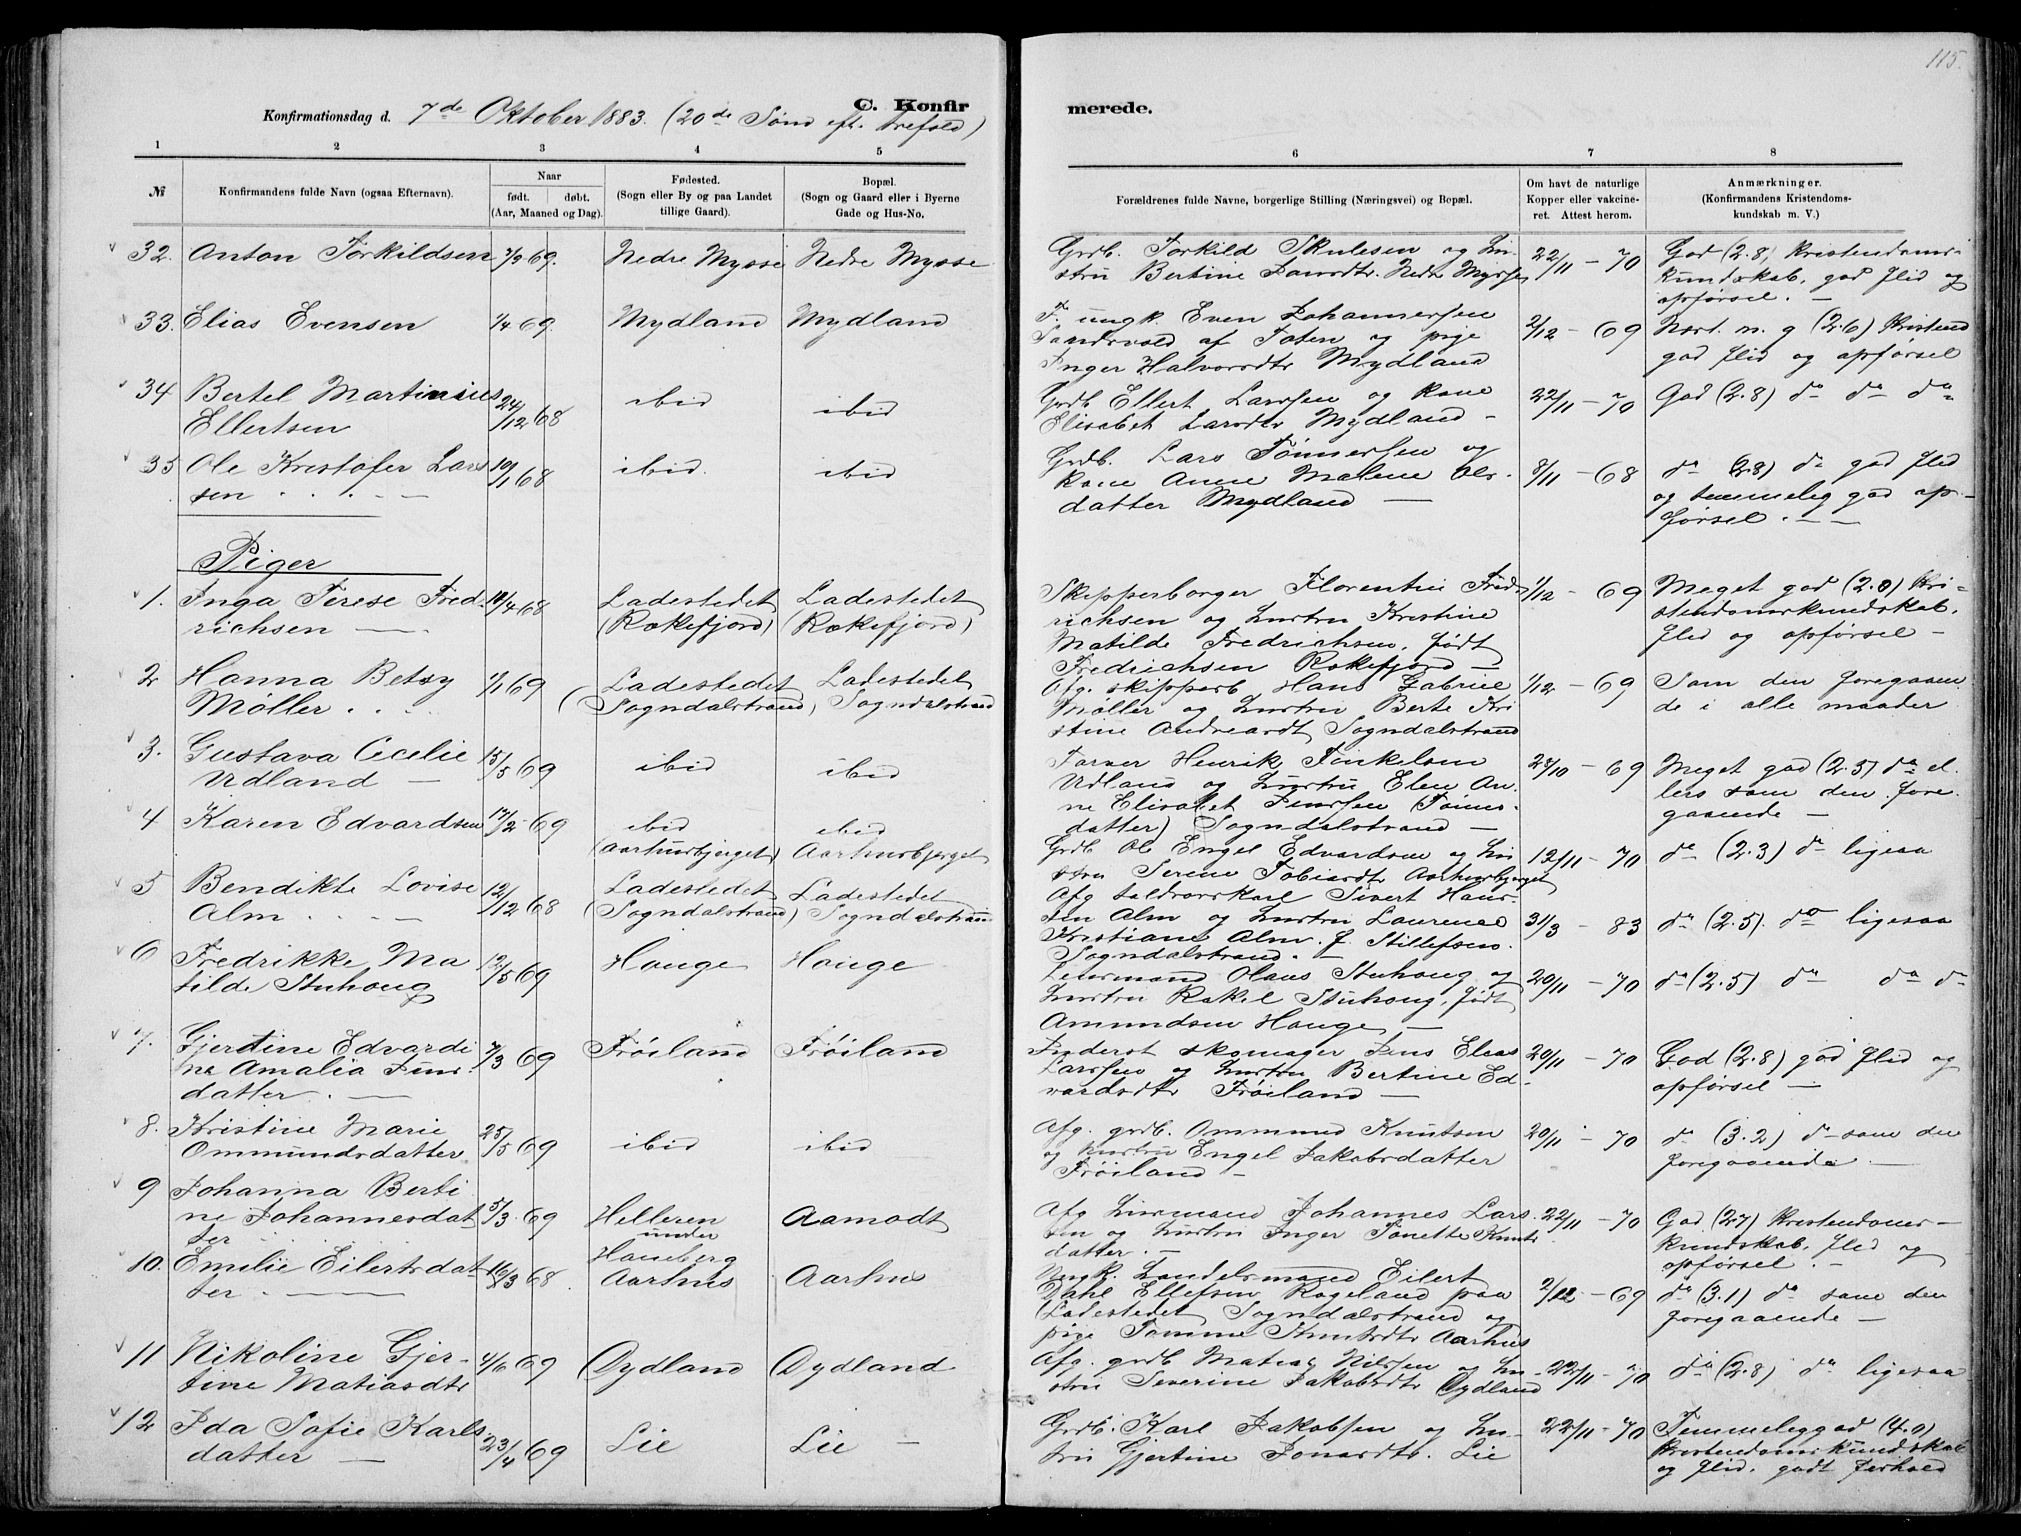 115.
C. Konfir
merede.
Konfirmationsdag d. 7de Oktober 1883. (20de Sønd eft. trefold)
1 2 3 4 5 6 7 8
№ Konfirmandens fulde Navn (ogsaa Efternavn).
Naar
født. døbt.
(Aar, Maaned og Dag).
Fødested.
(Sogn eller By og paa Landet
tillige Gaard).
Bopæl.
(Sogn og Gaard eller i Byerne
Gade og Hus-No.
Forældrenes fulde Navne, borgerlige Stilling (Næringsvei) og Bopæl.
Om havt de naturlige
Kopper eller vakcine-
ret. Attest herom.
Anmærkninger.
(Konfirmandens Kristendoms-
kundskab m. V.)
32. Anton Torkildsen 7/9 69. Nedre Mysse Nedre Mysse
Grdb. Torkild Skulesen og hu-
stru Bertine Jansdtr. Nedr Myssen
22/11 – 70
God (2.8) Kristendoms-
kundskab, god flid og
opførsel. –
33. Elias Evensen 1/4 69. Mydland Mydland
F. ungk. Even Johannessen
af Toten og pige
Inger Halvorsdtr Mydland
2/12 – 69
Next. n. g (2.6) Kristend
god flid og opførsel
34 Bertel Martinius
Ellertsen
24/12 68 ibid ibid
Grdb Ellert Larssen og kone
Elisabet Larsdtr Mydland –
22/11 – 70
God (2.8) do do do
35 Ole Kristofer Lars
sen . . . –
10/1 68 ibid. ibid
Grdb. Lars Tønnessen og
kone Anne Malene Ols-
datter Mydland —
8/11 – 68
do (2.8) do god flid
og temmelig god op-
førsel. – –
Piger
1. Inga Terese Fred-
richsen —.
10/4 68
Ladestedet
(Rækefjord)
Ladestedet
(Rækefjord)
Skipperborger Florentin Fred-
richsen og hustru Kristine
Matilde Fredrichsen, født
Fredrichsen Rækefjord —
1/12 – 69
Meget god (2.0) Kri-
stendomskundskab,
flid og opførsel –
2 Hanna Betsy
Møller . . .
1/1 69
Ladestedet
(Sogndalstrand)
Ladestedet
Sogndalstrand
Afg. skipperb Hans Gabriel
Møller og hustru Berte Kri
stine Andreasdt. Sogndalstrand
1/12 – 69
Som den foregaaen
de i alle maader
3. Gustava Cecelie
Udland –
15/5 69 ibid ibid
Farver Henrik Tønkelsen
Udland og hustru Elen An-
ne Elisabet Jenssen (Tønnes-
datter) Sogndalstrand —
28/10 – 69
Meget god (2.5) do el-
lers som den fore-
gaaende –
4 Karen Edvardsen 17/2 69
ibid
(Aarhusbjerget)
ibid
Aarhusbjerget
Grdb Ole Engel Edvardsen og hu
stru Serene Tobiasdtr Aarhusbjerget
12/11 – 70
do (2.3) do ligesaa
5 Bendikte Lovise
Alm . . . –
12/12 68
Ladestedet
(Sogndalstrand)
Ladestedet
Sogndalstrand
Afg toldrorskarl Sivert Hans-
sen Alm og hustru Laurence
Kristiane Alm. f. Stillefsen.
Sogndalstrand. –
31/3 – 83
do (2.5). do ligesaa
6 Fredrikke Ma
tilde Stuhoug
12/5 69 Hauge Hauge
Leiermand Olaus Stuhoug og
hustru Rakel Stuhoug, født
Amundsen Hauge –
20/11 – 70
do (2.5) do do do
7. Gjertine Edvardi
ne Amalia Jens-
datter. –
7/3 69 Frøiland Frøiland
Inderst skomager Jens Elias
Larssen og hustru Bertine Ed-
vardsdtr Frøiland –
20/11 – 70
God (2.8) god flid og
opførsel –
8. Kristine Marie
Ommundsdatter
25/5 69 ibid ibid
Afg. grdb. Ommund Knutsen
og hustru Engel Jakobsdatter
Frøiland –
20/11 – 70
do (3.2) do som den
foregaaende. –
9 Johanna Berti
ne Johannesdat
ter . . .
5/3 69
Helleren
under
Haneberg
Aamodt
Afg husmand Johannes Lars-
sen og hustru Inger Tonette Knuts
datter. –
22/11 – 70
God (2.7) Kristendoms-
kundskab, flid og
opførsel. –
10. Emilie Eilertsdat
ter . ——
16/3 68 Aarhus Aarhus
Ungk. handelsmand Eilert
Dahl Ellefsen Rægeland paa
Ladestedet Sogndalstrand og
pige Tomine Knutsdtr Aarhus
2/12 – 69
do (3.1) do som den
foregaaende –
11 Nikoline Gjer-
tine Matiasdtr
4/6 69 Dydland Dydland
Afg. grdb Matias Nilssen og hu-
stru Severine Jakobsdtr Dydland
22/11 – 70
do (2.8) do ligesaa
12 Ida Sofie Karls
datter –
23/4 69 Lie Lie –
Grdb. Karl Jakobsen og hu-
stru Gjertine Jonasdtr. Lie
22/11 – 70
Temmelig god (4.0)
Kristendomskundskab
og flid, godt forhold